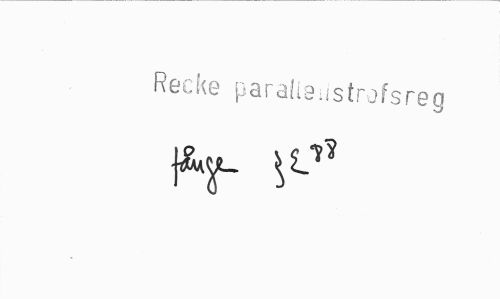 Recke parallellstrofsreg
fånge